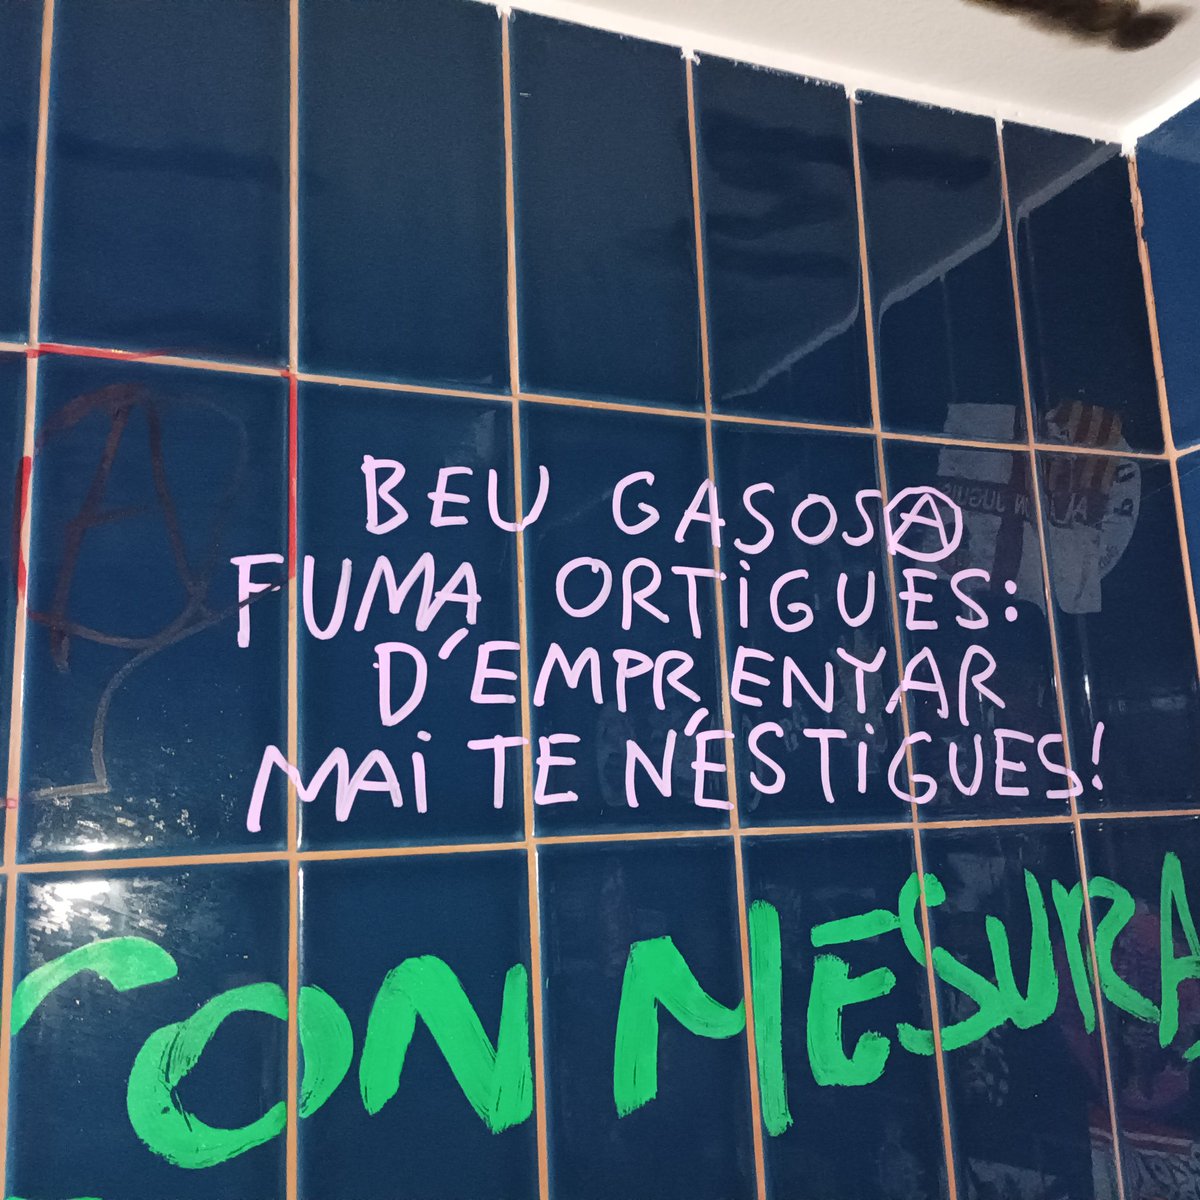 BEU GASOSA
FUMA ORTIGUES:
D'EMPRENYAR
MAI TE N'ESTIGUES!
CON MESURA